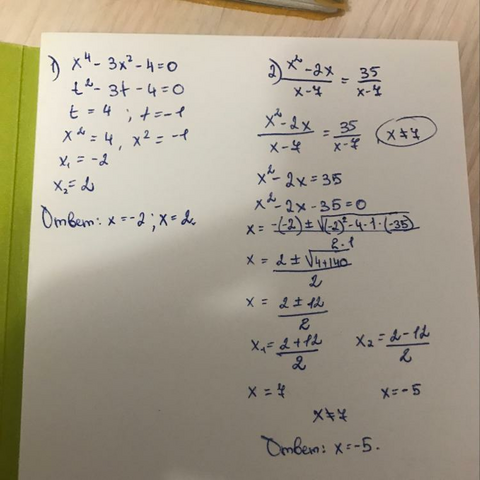 1) x⁴ - 3x² - 4 = 0
t² - 3t - 4 = 0
t = 4 ; t = -1
x² = 4, x² = -1
x₁ = -2
x₂ = 2
Ответ: x = -2 ; x = 2
2) (x² - 2x)/(x - 7) = 35/(x - 7)
(x² - 2x)/(x - 7) = 35/(x - 7), x ≠ 7
x² - 2x = 35
x² - 2x - 35 = 0
x = (-(-2) ± √((-2)² - 4·1·(-35)))/(2·1)
x = (2 ± √(4+140))/2
x = (2 ± 12)/2
x₁ = (2+12)/2 x₂ = (2-12)/2
x = 7 x = -5
x ≠ 7
Ответ: x = -5.